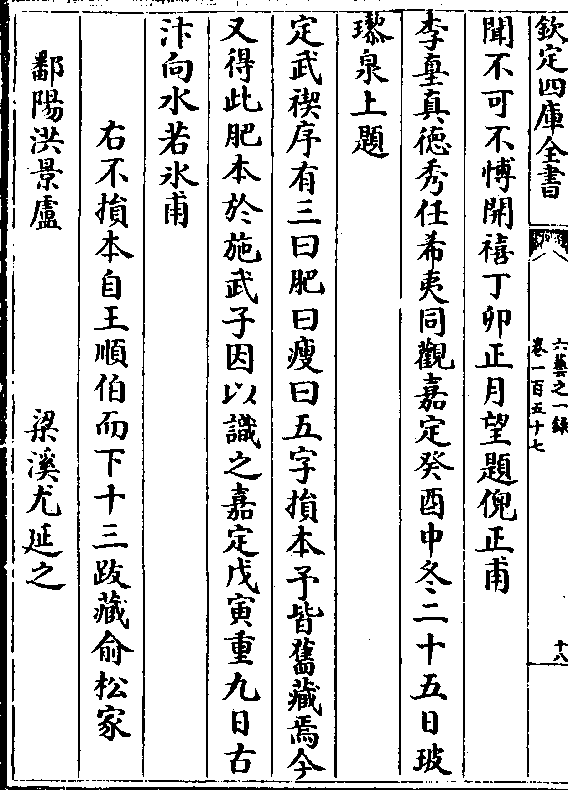 欽定四庫全書
六藝之一錄
卷一百五十七
十八
聞不可不慱開禧丁卯正月望題倪正甫
李𡔷真德秀任希夷同觀嘉定癸酉中冬二十五日玻
瓈泉上題
定武禊序有三曰肥曰瘦曰五字損本予皆舊藏焉今
又得此肥本於施武子因以識之嘉定戊寅重九日古
汴向水若氷甫
右不損本自王順伯而下十三䟦藏俞松家
鄱陽洪景廬
梁溪尤延之